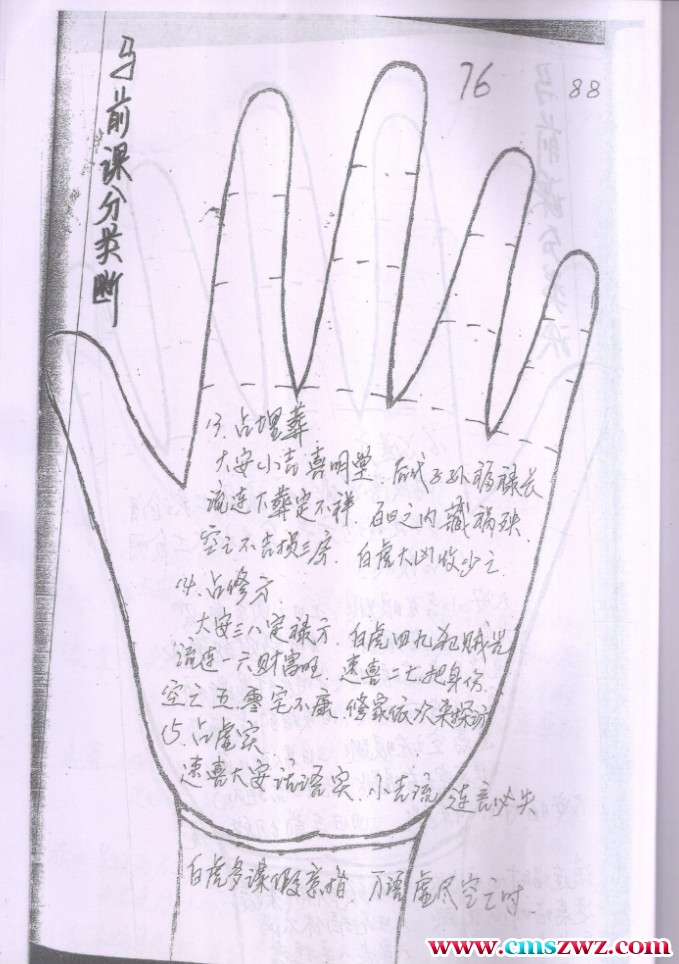 马前课分类断
76
88
13.占埋葬
大安小吉喜明堂.后代子孙福禄长
流连下葬定不祥.百日之内藏祸殃.
空亡不吉损三房.白虎大凶收少亡.
14.占修方
大安三八定禄方.白虎四九犯贼光
流连一六财富旺.速喜二七把身伤.
空亡五.零宅不康.修家依次来探访
15.占虚实
速喜大安话语实.小吉流连言必失
白虎多谋假意指 万语虚尽空亡时
www.cmszwz.com